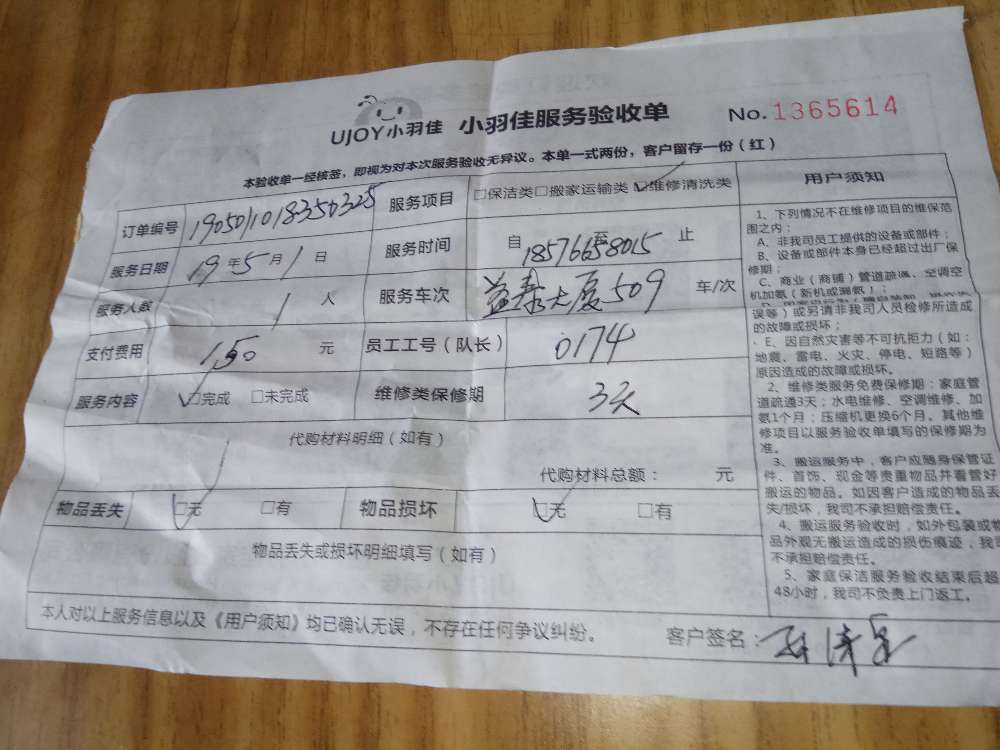 UJOY小羽佳 小羽佳服务验收单 No.1365614
本验收单一经核签，即视为对本次服务验收无异议。本单一式两份，客户留存一份（红）
订单编号 190501018350325 服务项目 □保洁类□搬家运输类☑维修清洗类
服务日期 19年5月1日 服务时间 自 18576658015 至 止
服务人数 1 人 服务车次 益泰大厦509 车/次
支付费用 150 元 员工工号（队长） 0174
服务内容 ☑完成 □未完成 维修类保修期 3天
代购材料明细（如有）
代购材料总额： 元
物品丢失 ☑无 □有 物品损坏 ☑无 □有
物品丢失或损坏明细填写（如有）
本人对以上服务信息以及《用户须知》均已确认无误，不存在任何争议纠纷。 客户签名：
用户须知
1、下列情况不在维修项目的维保范
围之内：
A、非我司员工提供的设备或部件；
B、设备或部件本身已经超过出厂保
修期；
C、商业（商铺）管道疏通、空调空
机加氨（新机或漏氨）；
误等）或另请非我司人员检修所造成
的故障或损坏；
E、因自然灾害等不可抗拒力（如：
地震、雷电、火灾、停电、短路等）
原因造成的故障或损坏。
2、维修类服务免费保修期：家庭管
道疏通3天；水电维修、空调维修、加
氨1个月；压缩机更换6个月。其他维
修项目以服务验收单填写的保修期为
准。
3、搬运服务中，客户应随身保管证
件、首饰、现金等贵重物品并看管好
搬运的物品。如因客户造成的物品丢
失/损坏，我司不承担赔偿责任。
4、搬运服务验收时，如外包装或物
品外观无搬运造成的损伤痕迹，我司
不承担赔偿责任。
5、家庭保洁服务验收结束后超
48小时，我司不负责上门返工。